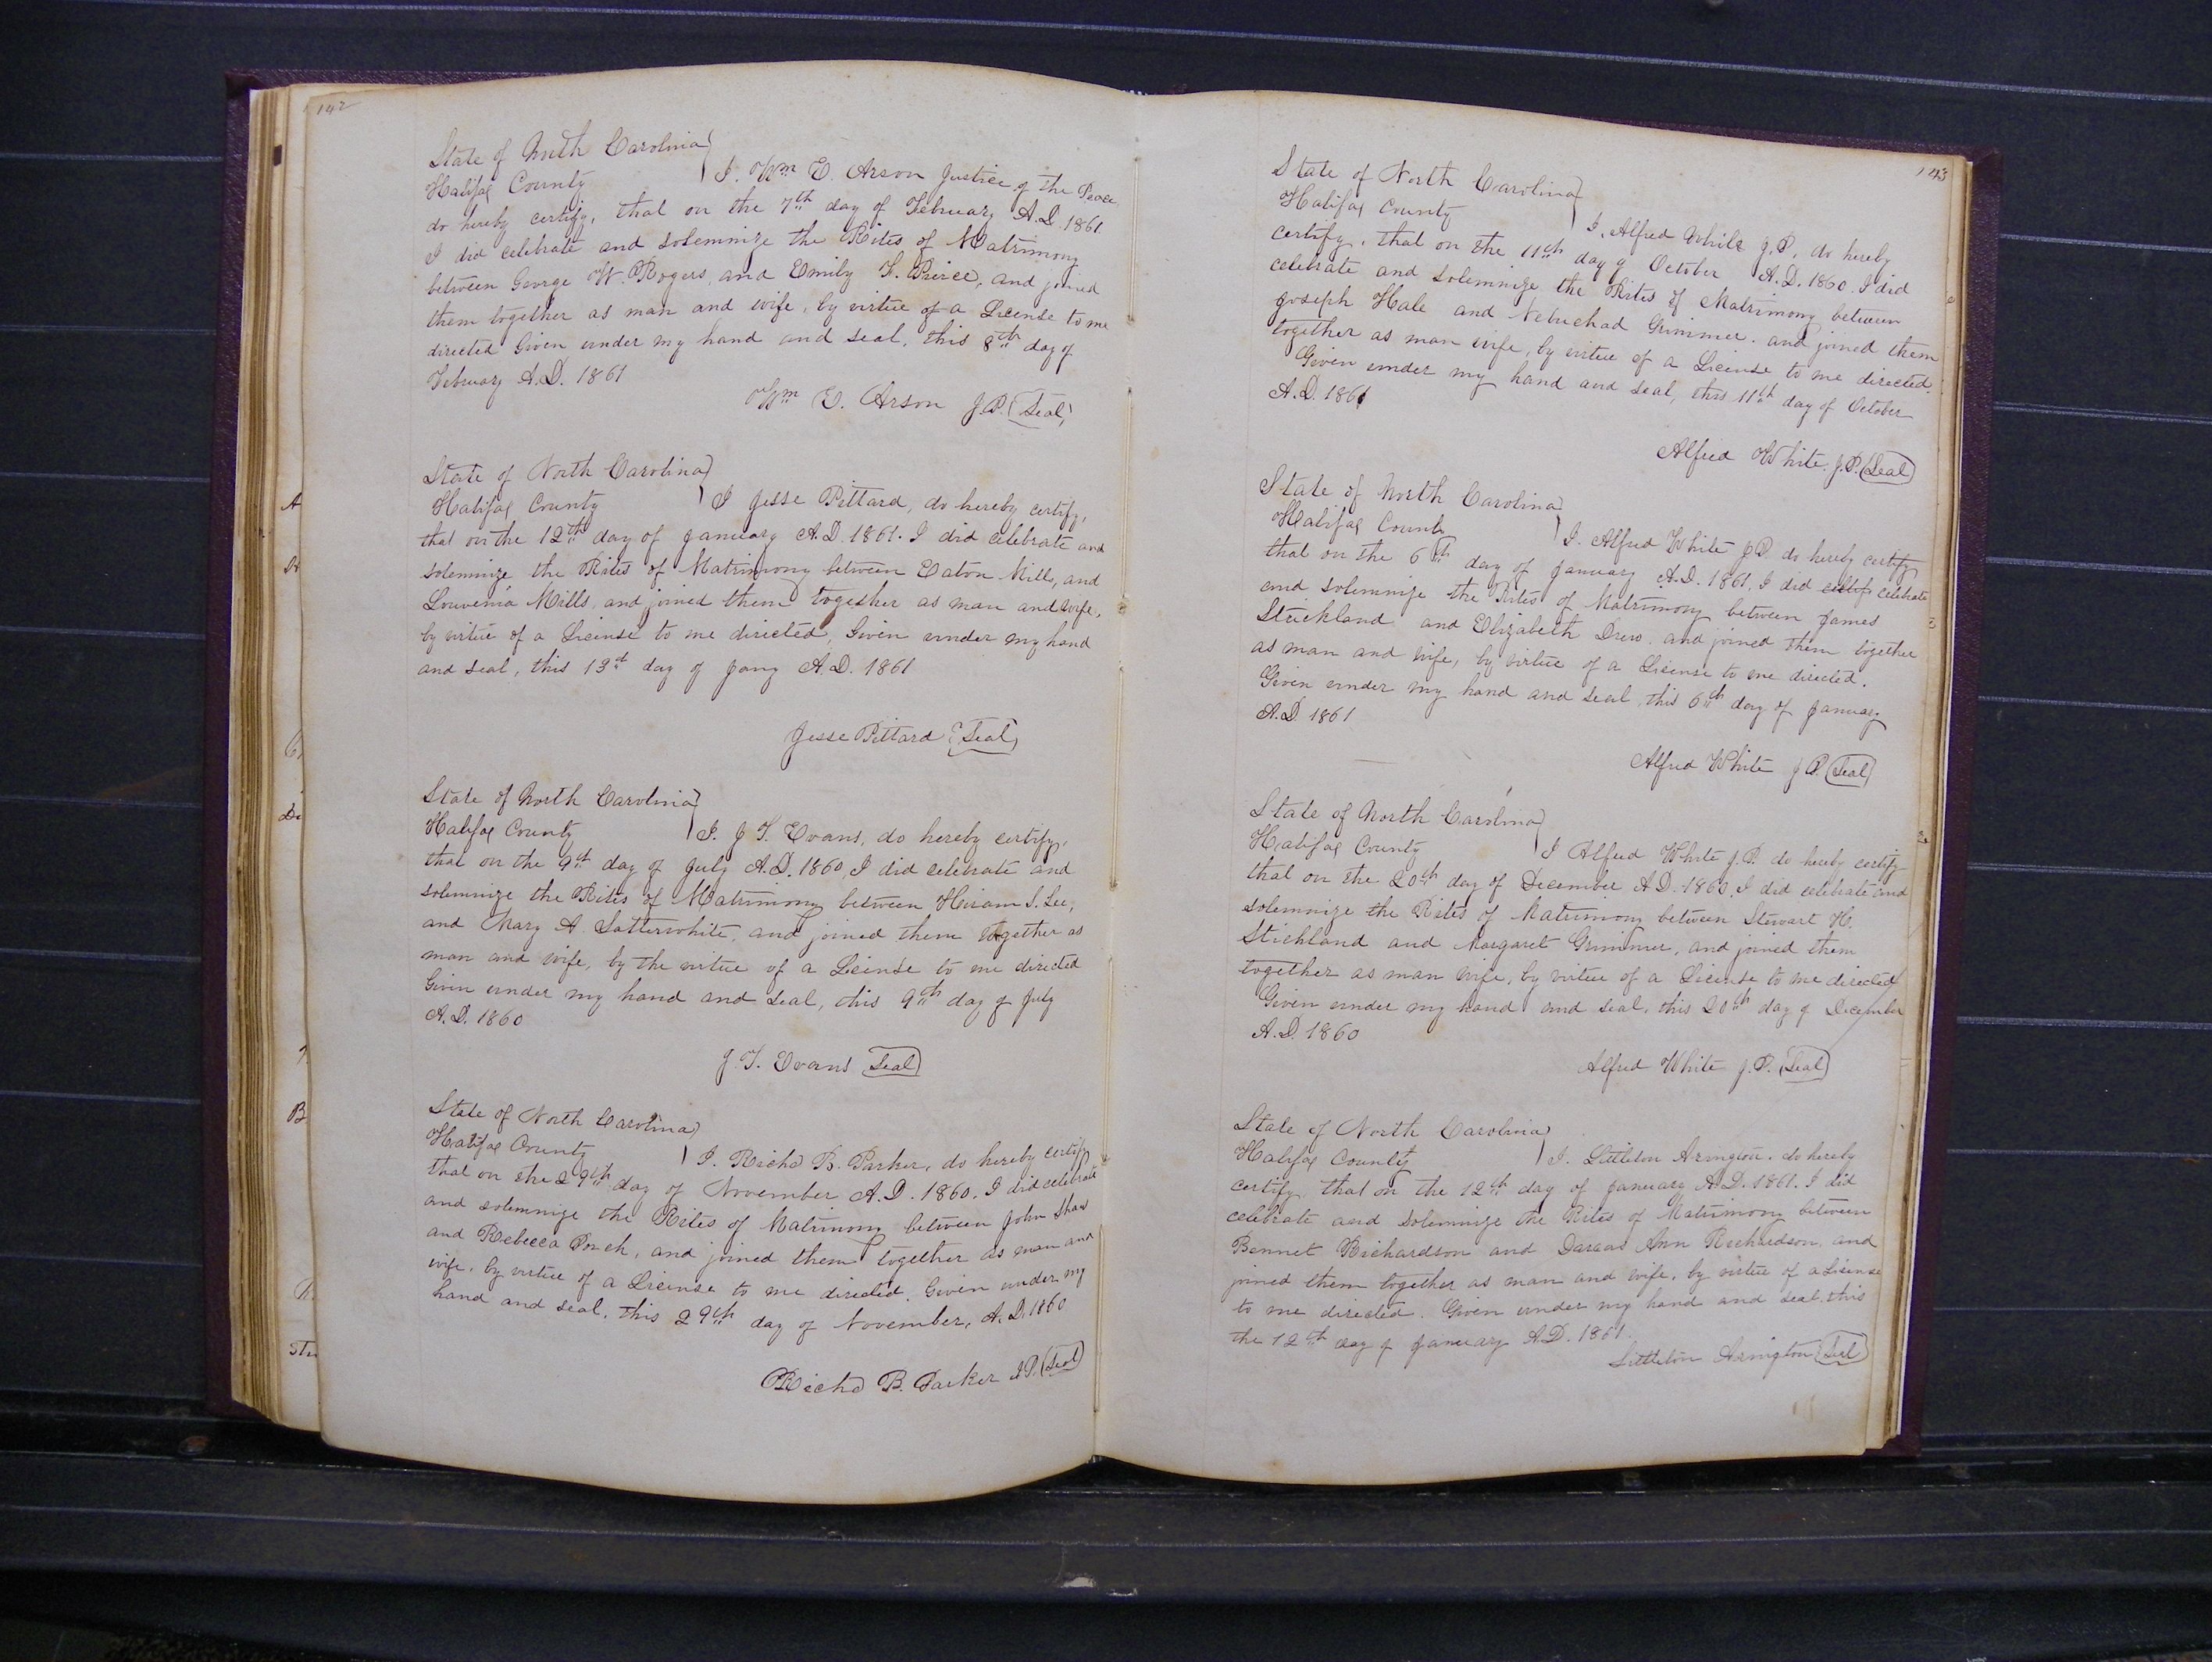 142
State of North Carolina
Halifax County
I. Wm E. Arson Justice of the Peace
do hereby certify, that on the 7th day of February A.D. 1861
I did celebrate and solemnize the Rites of Matrimony
between George W. Rogers, and Emily F. Peirce, and joined
them together as man and wife, by virtue of a License to me
directed Given under my hand and seal, this 8th day of
February A.D. 1861
Wm E. Arson J.P. (Seal)
State of North Carolina
Halifax County
I Jesse Pittard, do hereby certify,
that on the 12th day of January A.D. 1861. I did celebrate and
solemnize the Rites of Matrimony between Eaton Mills, and
Louvenia Mills, and joined them together as man and wife,
by virtue of a License to me directed, Given under my hand
and seal, this 13th day of Jany A.D. 1861
Jesse Pittard (Seal)
State of North Carolina
Halifax County
I. J T. Evans, do hereby certify,
that on the 9th day of July A.D. 1860, I did celebrate and
solemnize the Rites of Matrimony between Hiram S. Lee,
and Mary A. Satterwhite, and joined them together as
man and wife, by the virtue of a License to me directed
Given under my hand and seal, this 9th day of July
A.D. 1860
J. T. Evans (Seal)
State of North Carolina
Halifax County
I. Richd B. Parker, do hereby certify
that on the 29th day of November A.D. 1860. I did celebrate
and solemnize the Rites of Matrimony between John Shaw
and Rebecca Porch, and joined them together as man and
wife, by virtue of a License to me directed. Given under my
hand and seal, this 29th day of November, A.D. 1860
Richd B. Parker J.P. (Seal)
143
State of North Carolina
Halifax County
I. Alfred White J.P. do hereby
certify, that on the 11th day of October A.D. 1860. I did
celebrate and solemnize the Rites of Matrimony between
Joseph Hale and Nebuchad Grimmer. and joined them
together as man wife, by virtue of a License to me directed.
Given under my hand and seal, this 11th day of October
A.D. 1861
Alfred White. J.P. (Seal)
State of North Carolina
Halifax County
I. Alfred White J.P. do hereby certify
that on the 6th day of January A.D. 1861, I did celebrate
and solemnize the Rites of Matrimony between James
Strickland and Elizabeth Drew. and joined them together
as man and wife, by virtue of a License to me directed.
Given under my hand and seal, this 6th day of January
A.D 1861
Alfred White J.P. (Seal)
State of North Carolina
Halifax County
I Alfred White J.P. do hereby certify
that on the 20th day of December A.D. 1860. I did celebrate and
solemnize the Rites of Matrimony between Stewart H.
Stichland and Margaret Grimmer, and joined them
together as man wife, by virtue of a License to me directed
Given under my hand and seal, this 20th day of December
A.D. 1860
Alfred White J.P. (Seal)
State of North Carolina
Halifax County
I. Littleton Arington. do hereby
certify, that on the 12th day of January A.D. 1861. I did
celebrate and solemnize the Rites of Matrimony between
Bennet Richardson and Darcas Ann Richardson, and
joined them together as man and wife, by virtue of a License
to me directed. Given under my hand and seal, this
the 12th day of January A.D. 1861.
Littleton Arington (Seal)